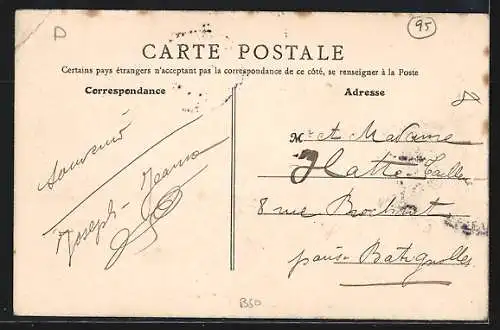 D
95
CARTE POSTALE
Certains pays étrangers n'acceptant pas la correspondance de ce côté, se renseigner à la Poste
Correspondance
Adresse
Souvenir
Joseph - Jeanne
Mr et Madame
Hatte Tailleur
8 rue Brochant
Paris - Batignolles
B50